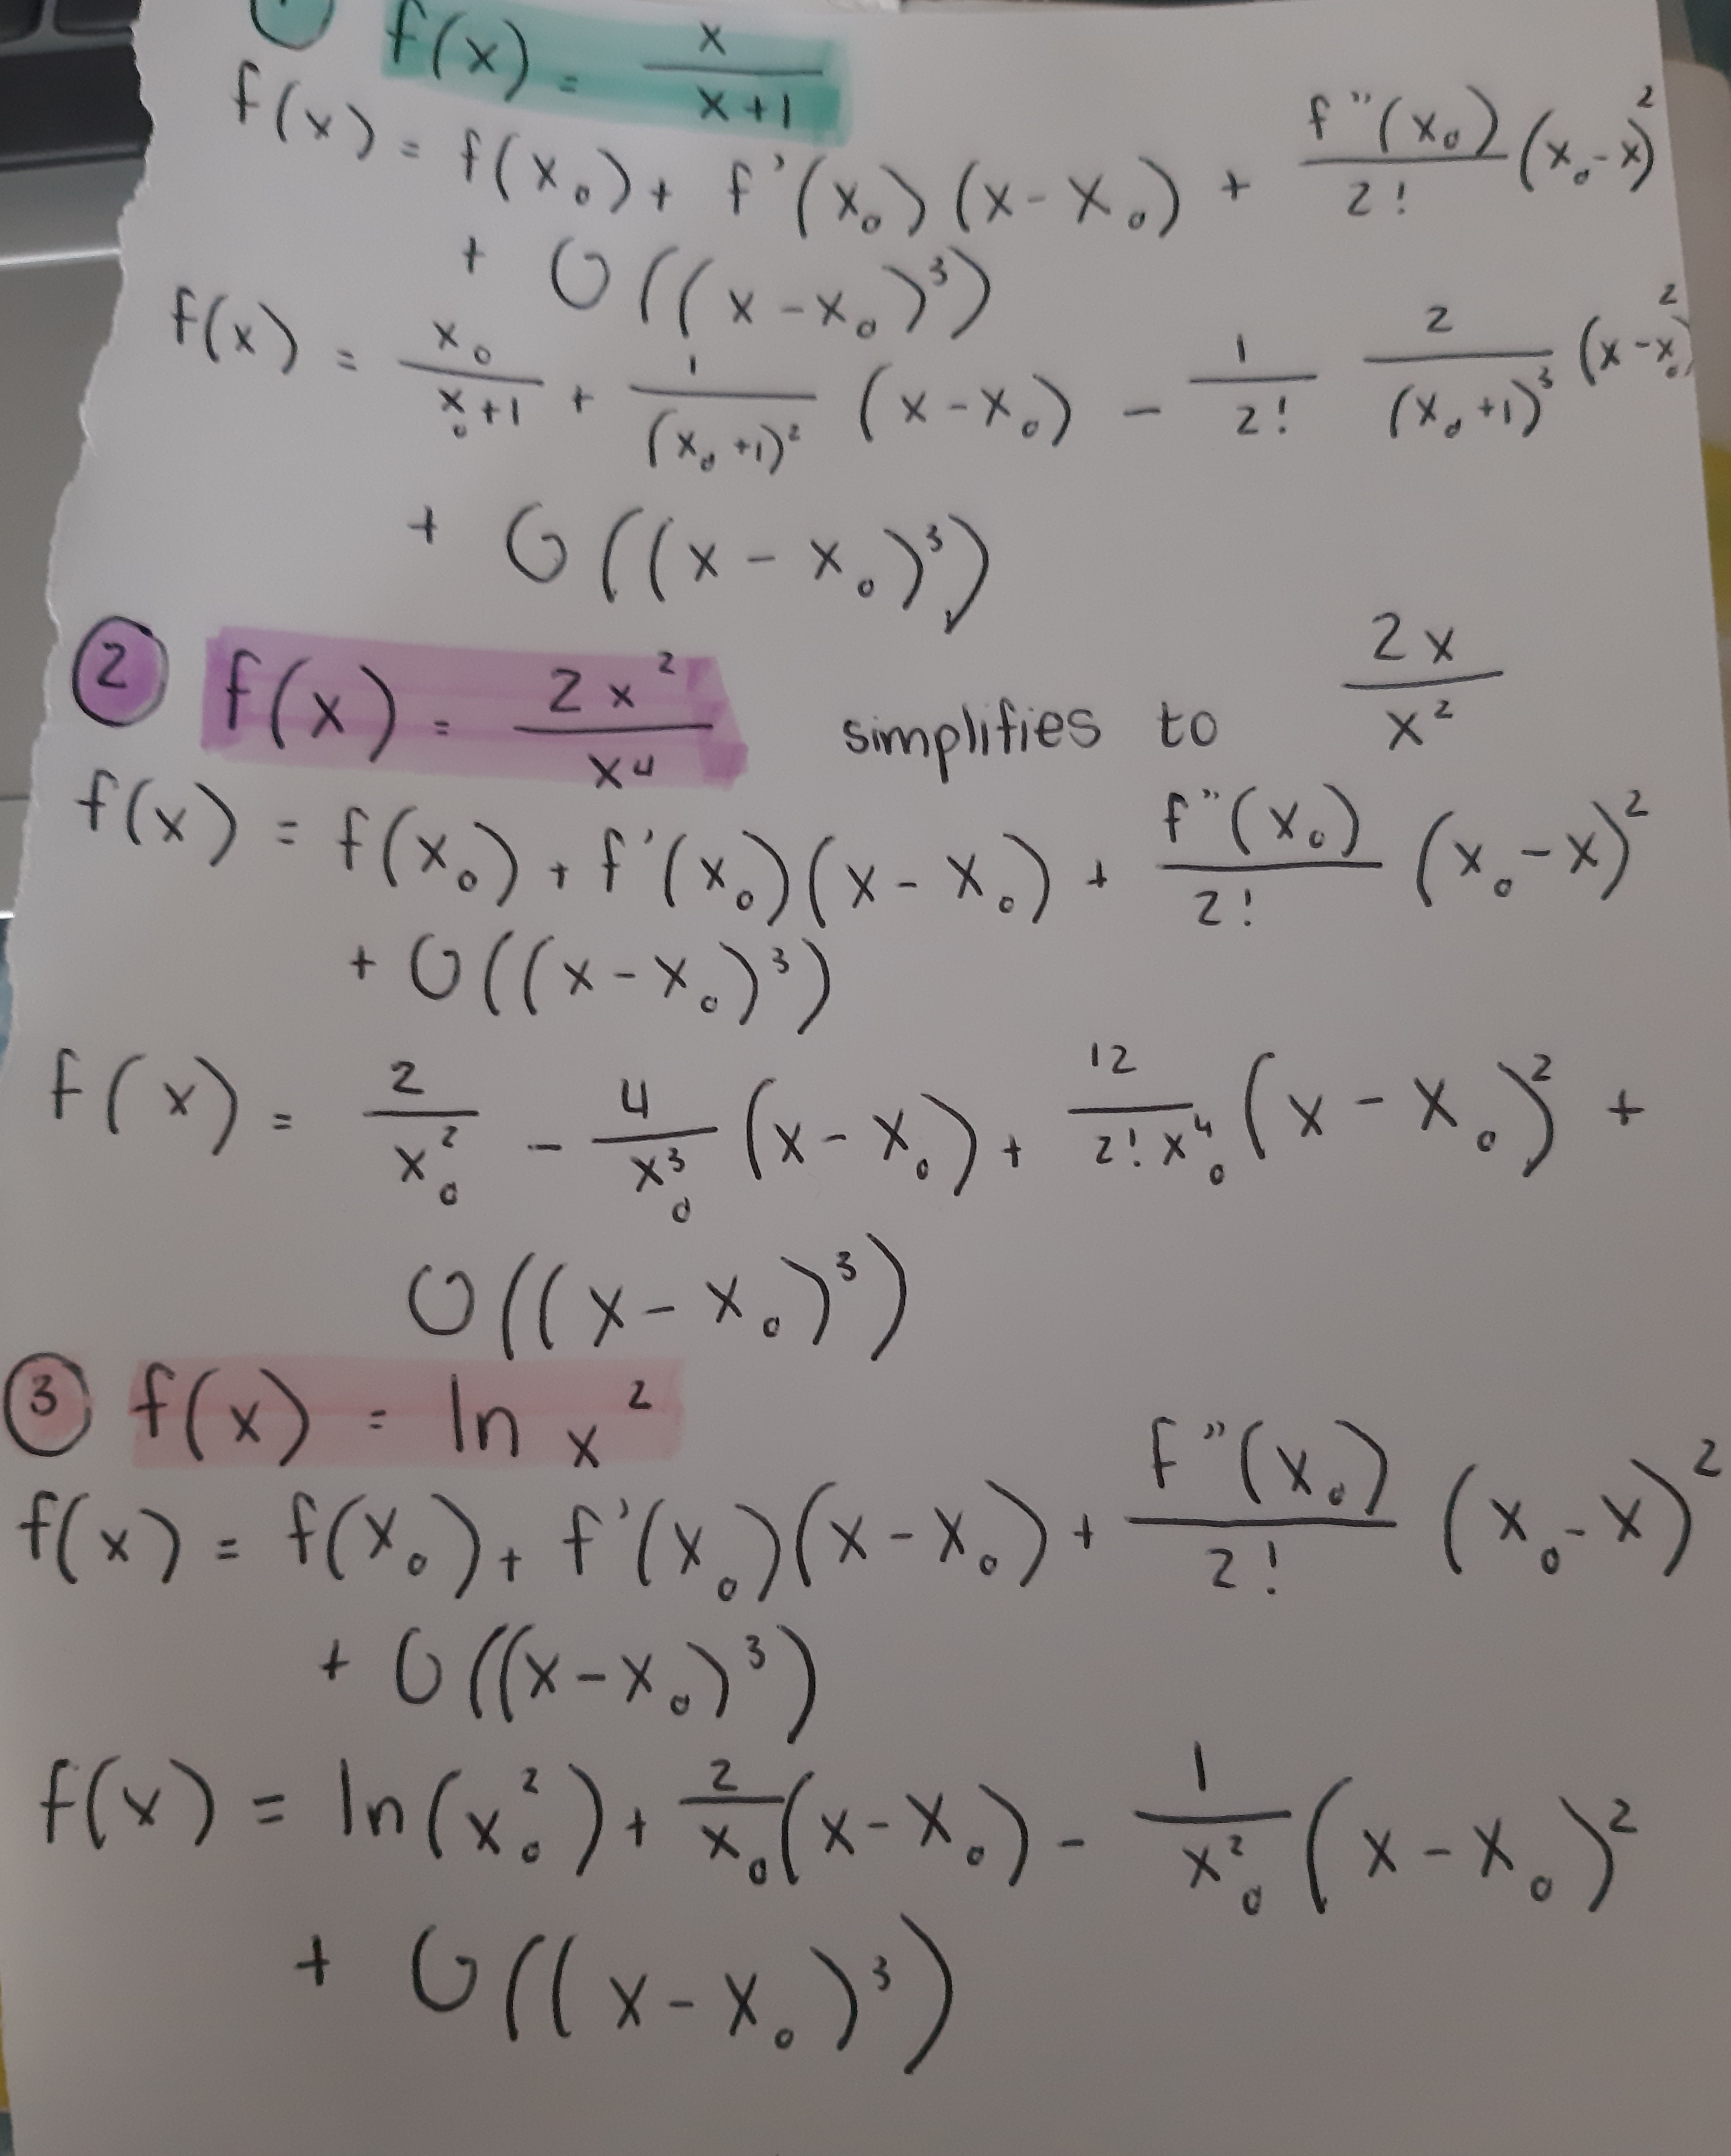 1 f(x) = x/(x+1)
f(x) = f(x₀) + f'(x₀)(x-x₀) + f''(x₀)/2! (x₀-x)²
+ O((x-x₀)³)
f(x) = x₀/(x₀+1) + 1/(x₀+1)² (x-x₀) - 1/2! 2/(x₀+1)³ (x-x₀)²
+ O((x-x₀)³)
2 f(x) = 2x²/x⁴ simplifies to 2x/x²
f(x) = f(x₀) + f'(x₀)(x-x₀) + f''(x₀)/2! (x₀-x)²
+ O((x-x₀)³)
f(x) = 2/x₀² - 4/x₀³ (x-x₀) + 12/2!x₀⁴ (x-x₀)² +
O((x-x₀)³)
3 f(x) = ln x²
f(x) = f(x₀) + f'(x₀)(x-x₀) + f''(x₀)/2! (x₀-x)²
+ O((x-x₀)³)
f(x) = ln(x₀²) + 2/x₀ (x-x₀) - 1/x₀² (x-x₀)²
+ O((x-x₀)³)